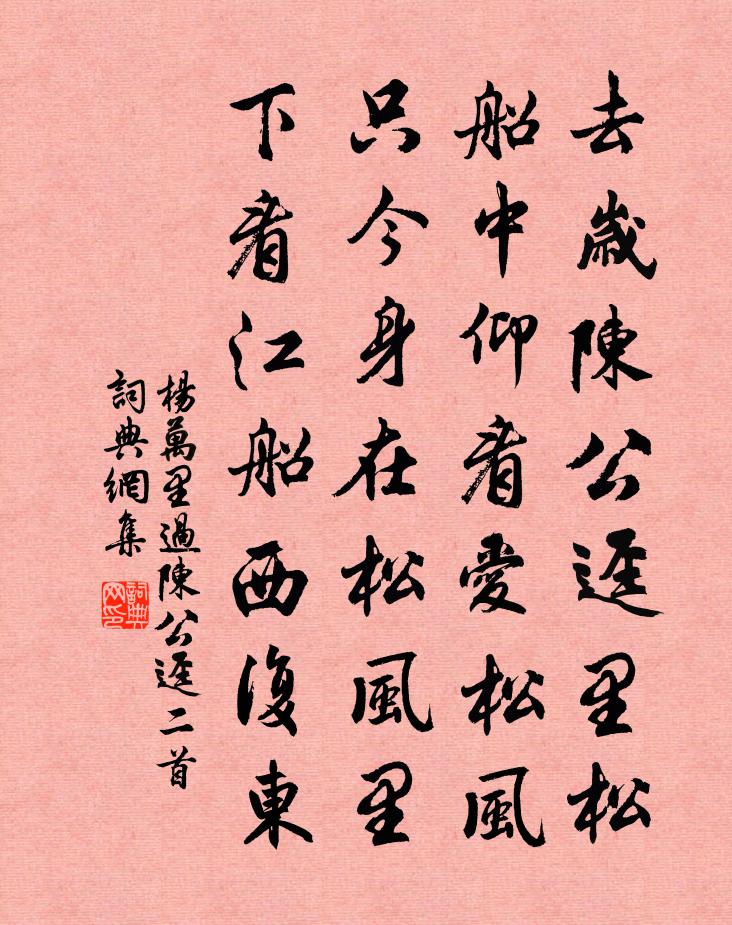 去歲陳公逕里松
船中仰看愛松風
只今身在松風里
下看江船西復東
楊萬里過陳公逕二首
詞典網集
詞典网印